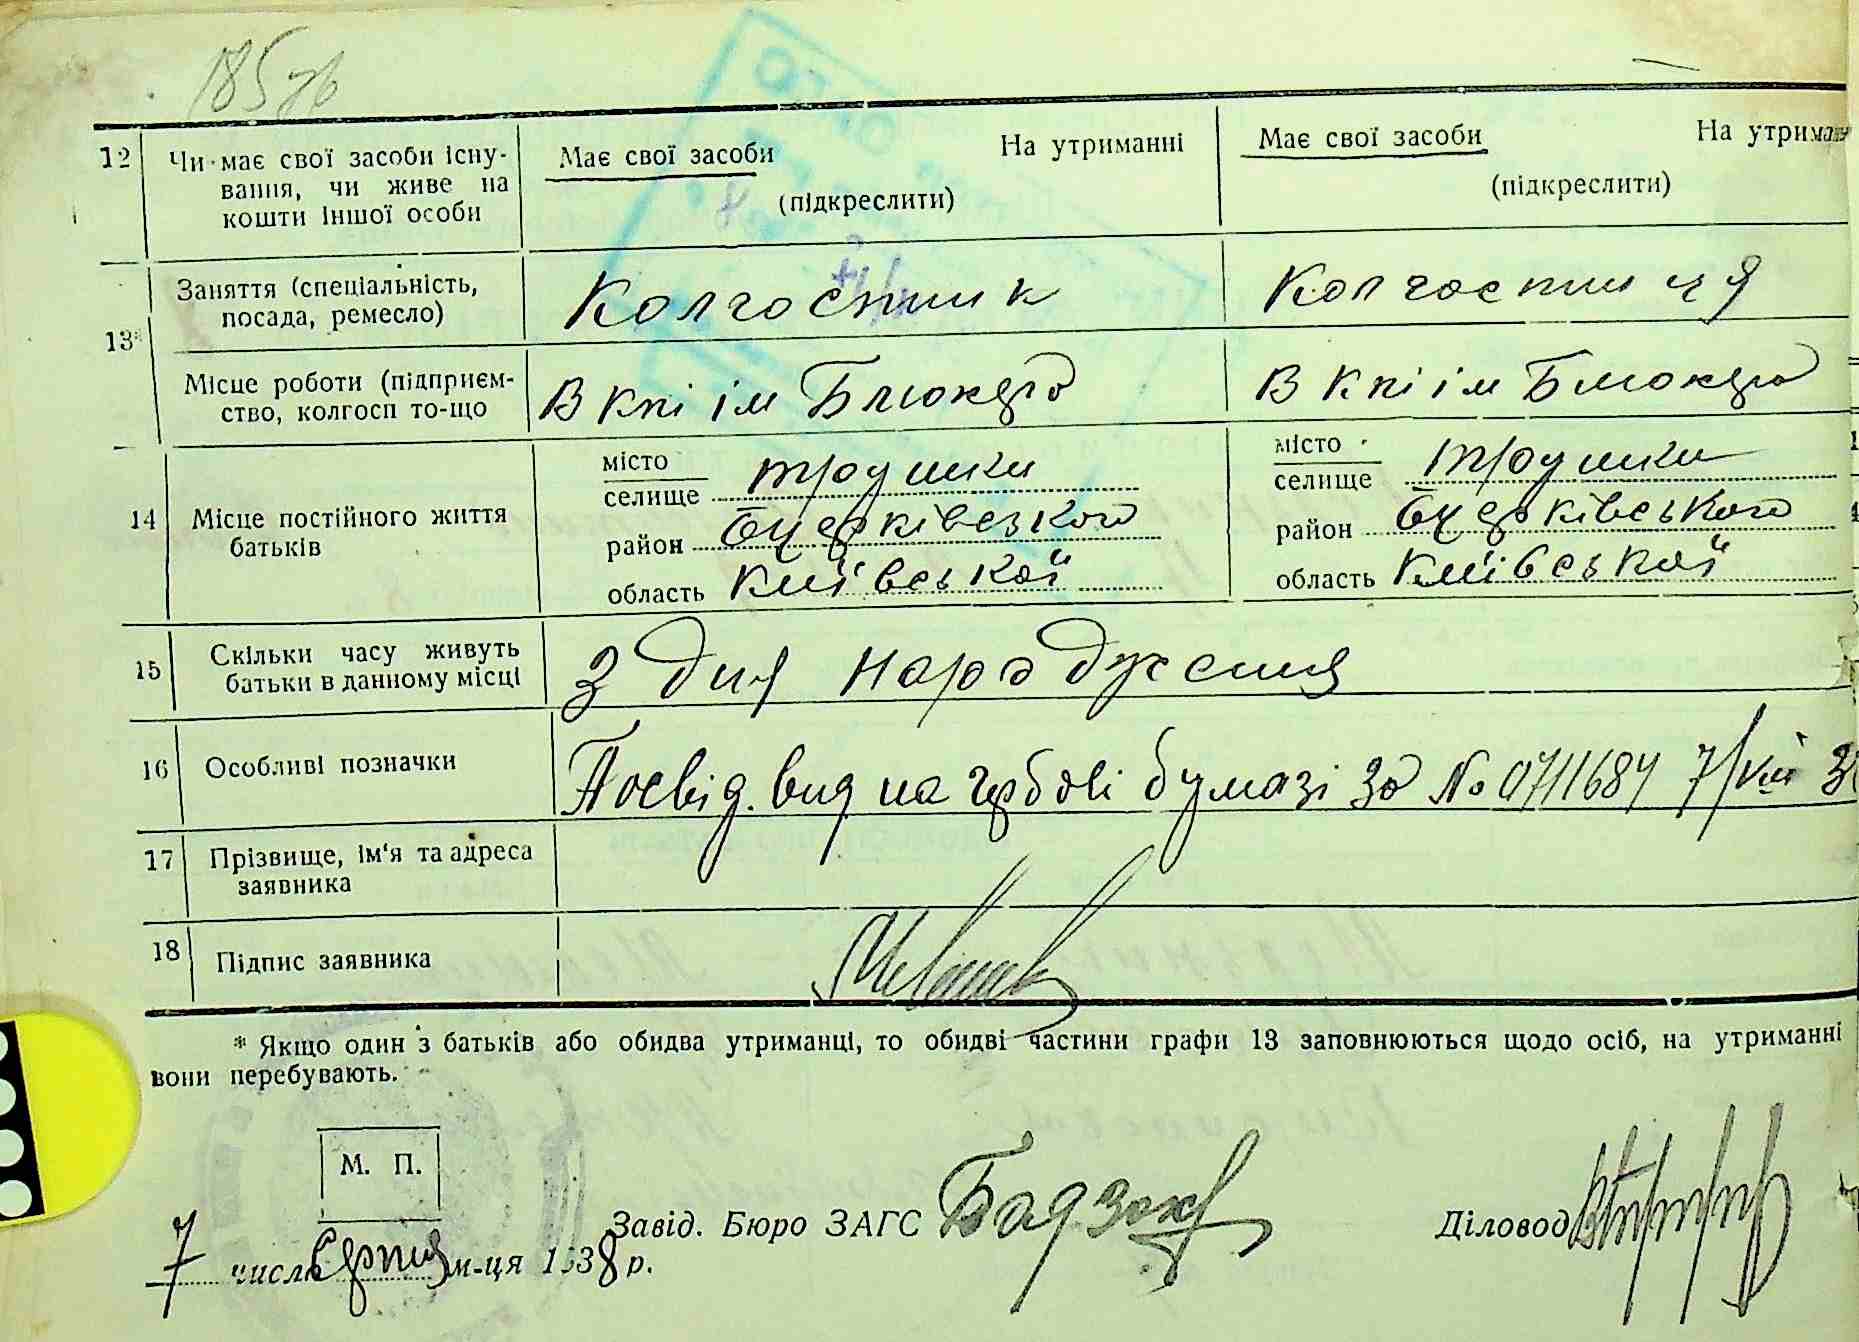 185 зв
12 Чи має свої засоби існу-
вання, чи живе на
кошти іншої особи
Має свої засоби На утриманні
(підкреслити)
Має свої засоби На утриман
(підкреслити)
13*
Заняття (спеціальність,
посада, ремесло)
Колгоспник
Колгоспниця
Місце роботи (підприєм-
ство, колгосп то-що
В к-пі ім Блюхера
В к-пі ім Блюхера
14 Місце постійного життя
батьків
місто
селище Трушки
район Бцерківського
область Київської
місто
селище Трушки
район Бцерківського
область Київської
15 Скільки часу живуть
батьки в данному місці
З дня народження
16 Особливі позначки
Посвід. вид на гербові бумазі за № 0711684 7/VIII 3
17 Прізвище, ім'я та адреса
заявника
18 Підпис заявника
* Якщо один з батьків або обидва утриманці, то обидві частини графи 13 заповнюються щодо осіб, на утриманні
вони перебувають.
М. П.
Завід. Бюро ЗАГС
Діловод
7 числа Серпня м-ця 1938 р.